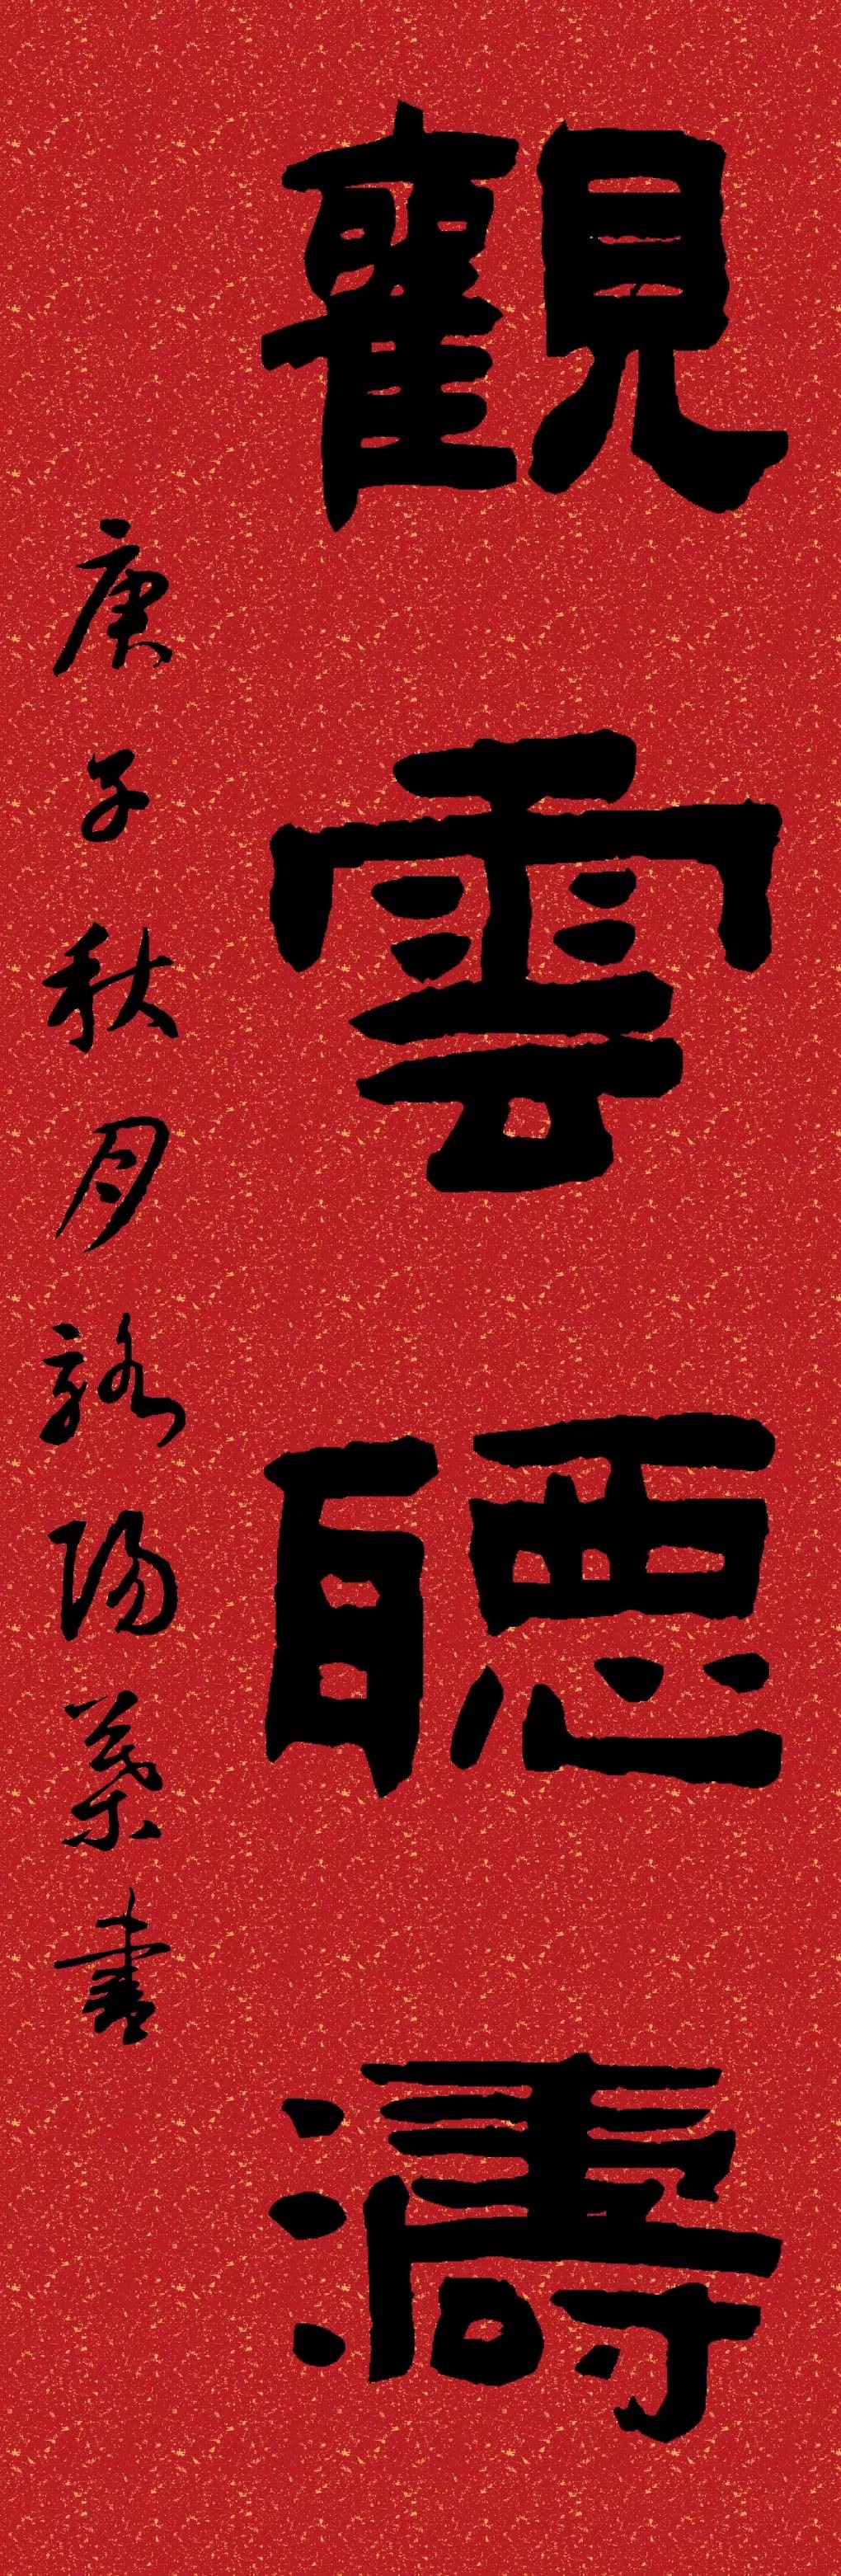 觀雲聽濤
庚子秋月 陽葉書